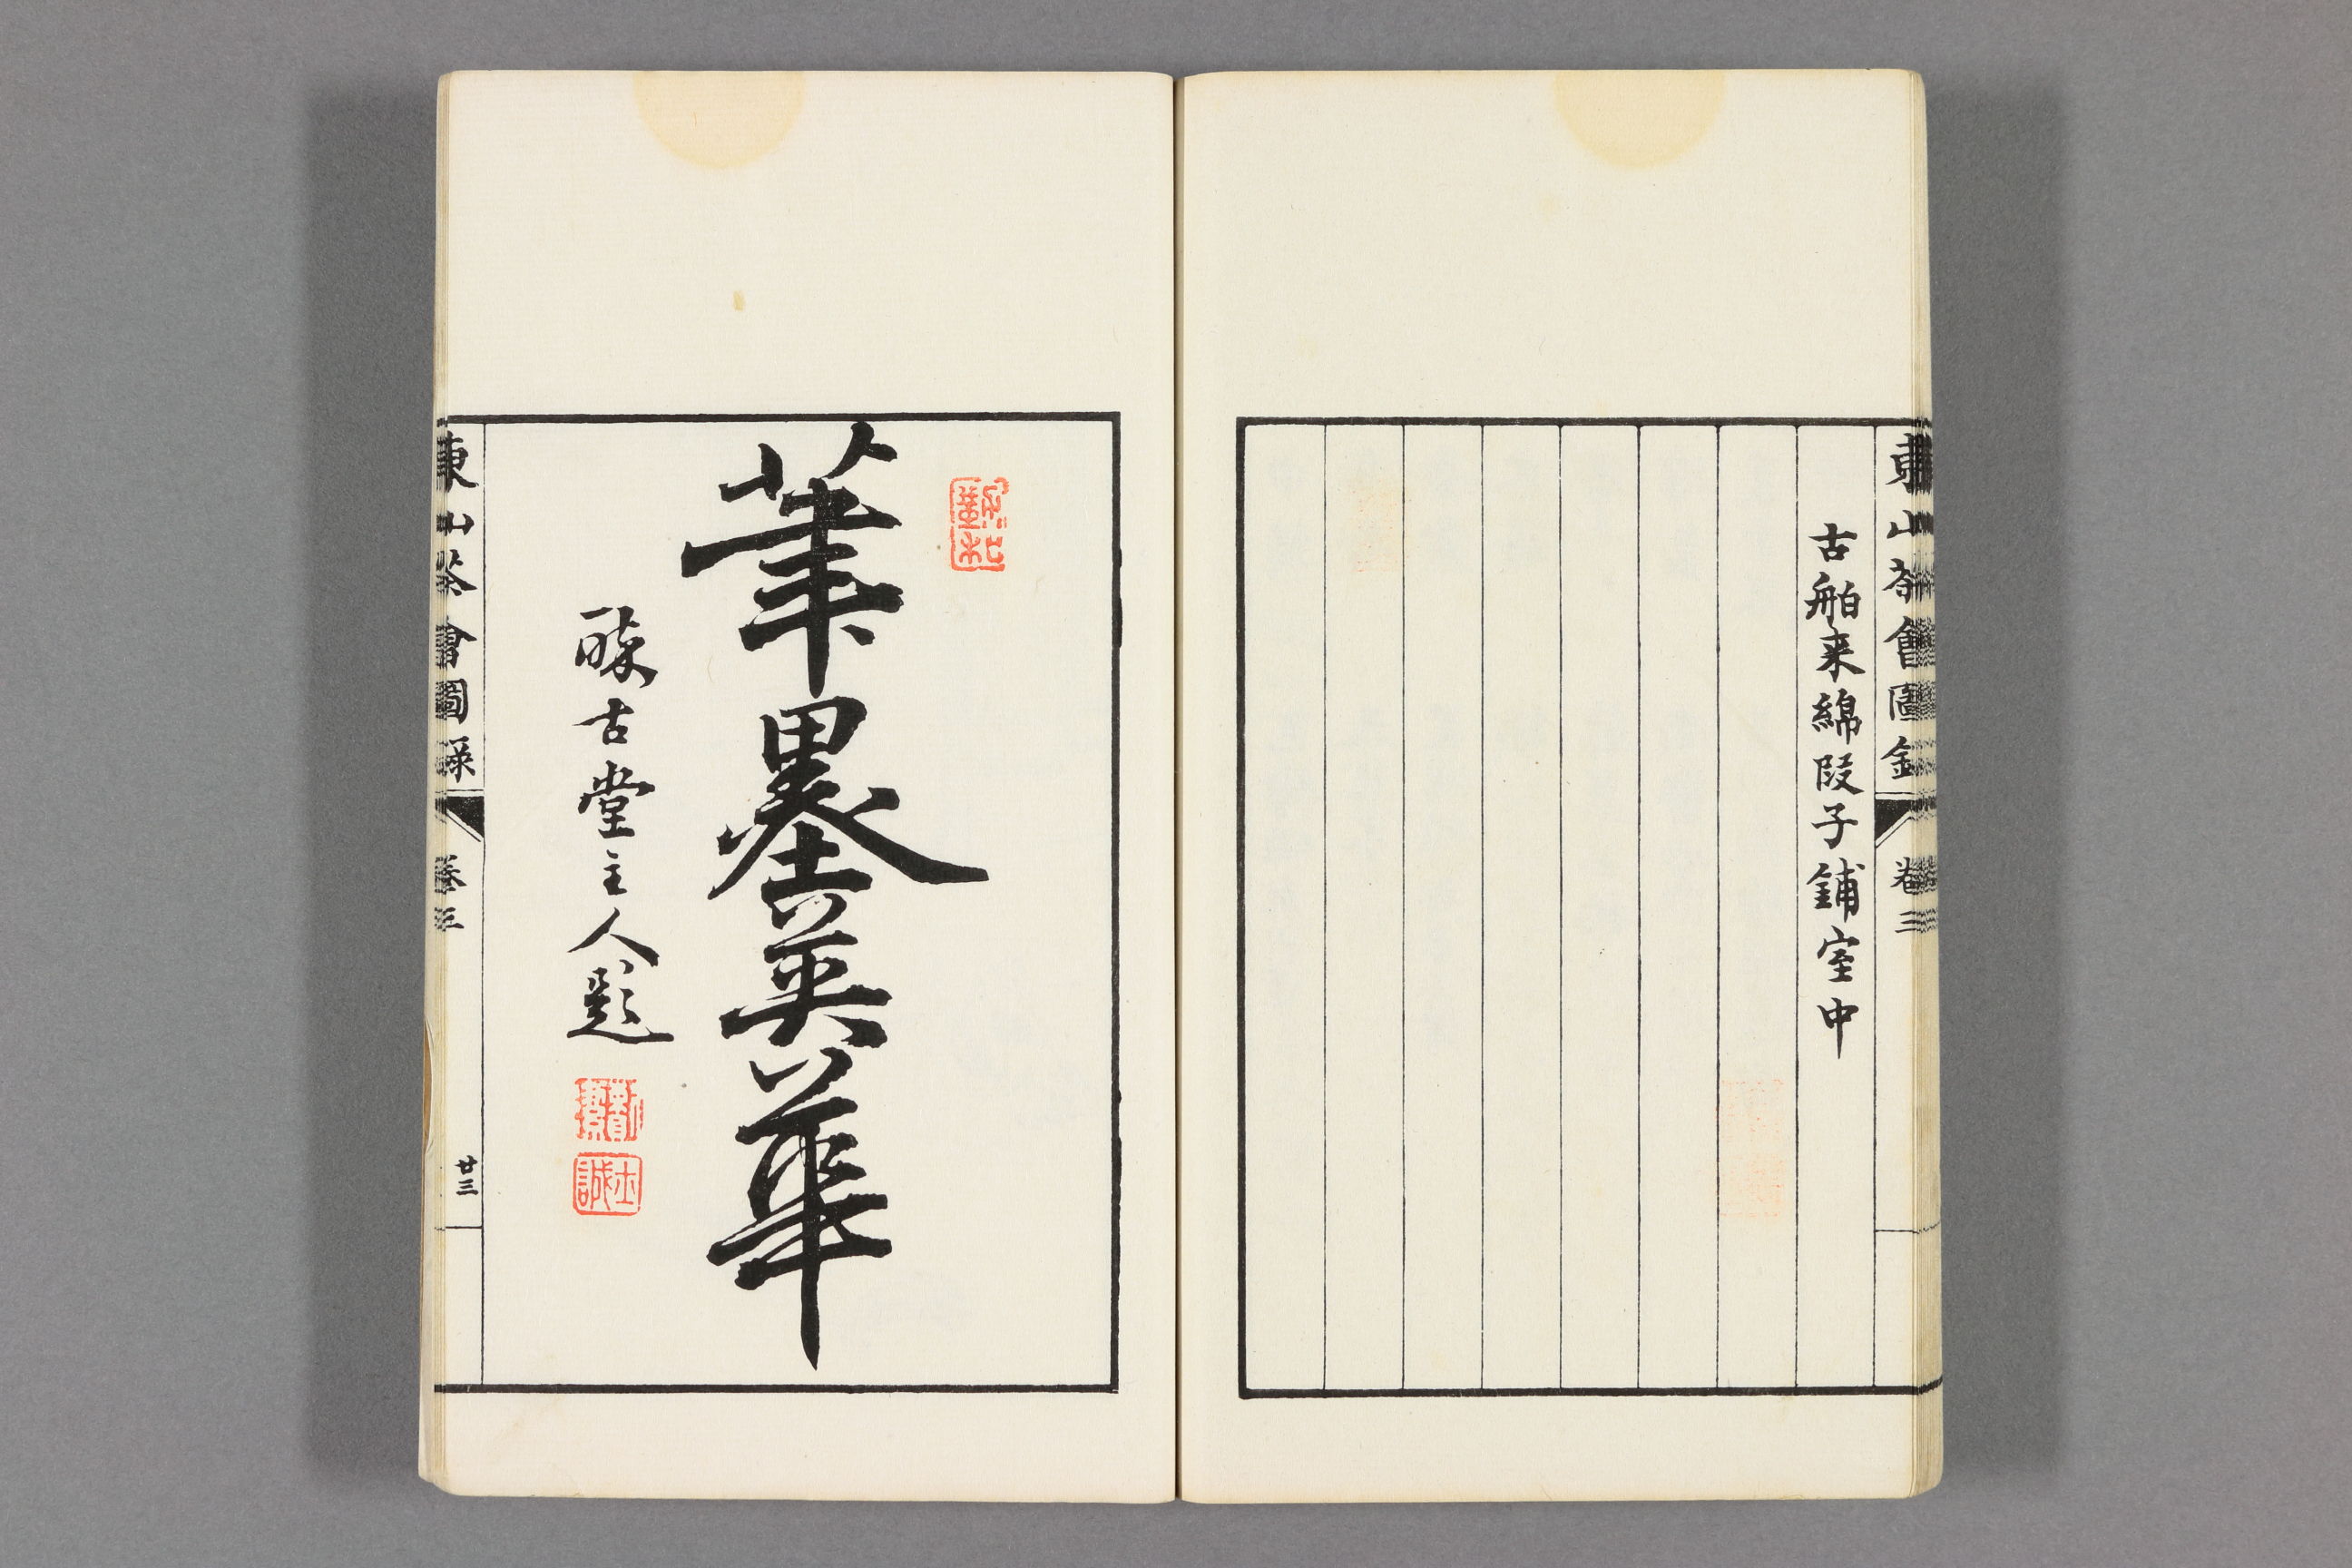 東山茶會圖録
卷三
古舶来綿段子鋪室中
筆墨英華
醁古堂主人題
東山茶會圖録
卷三
廿三